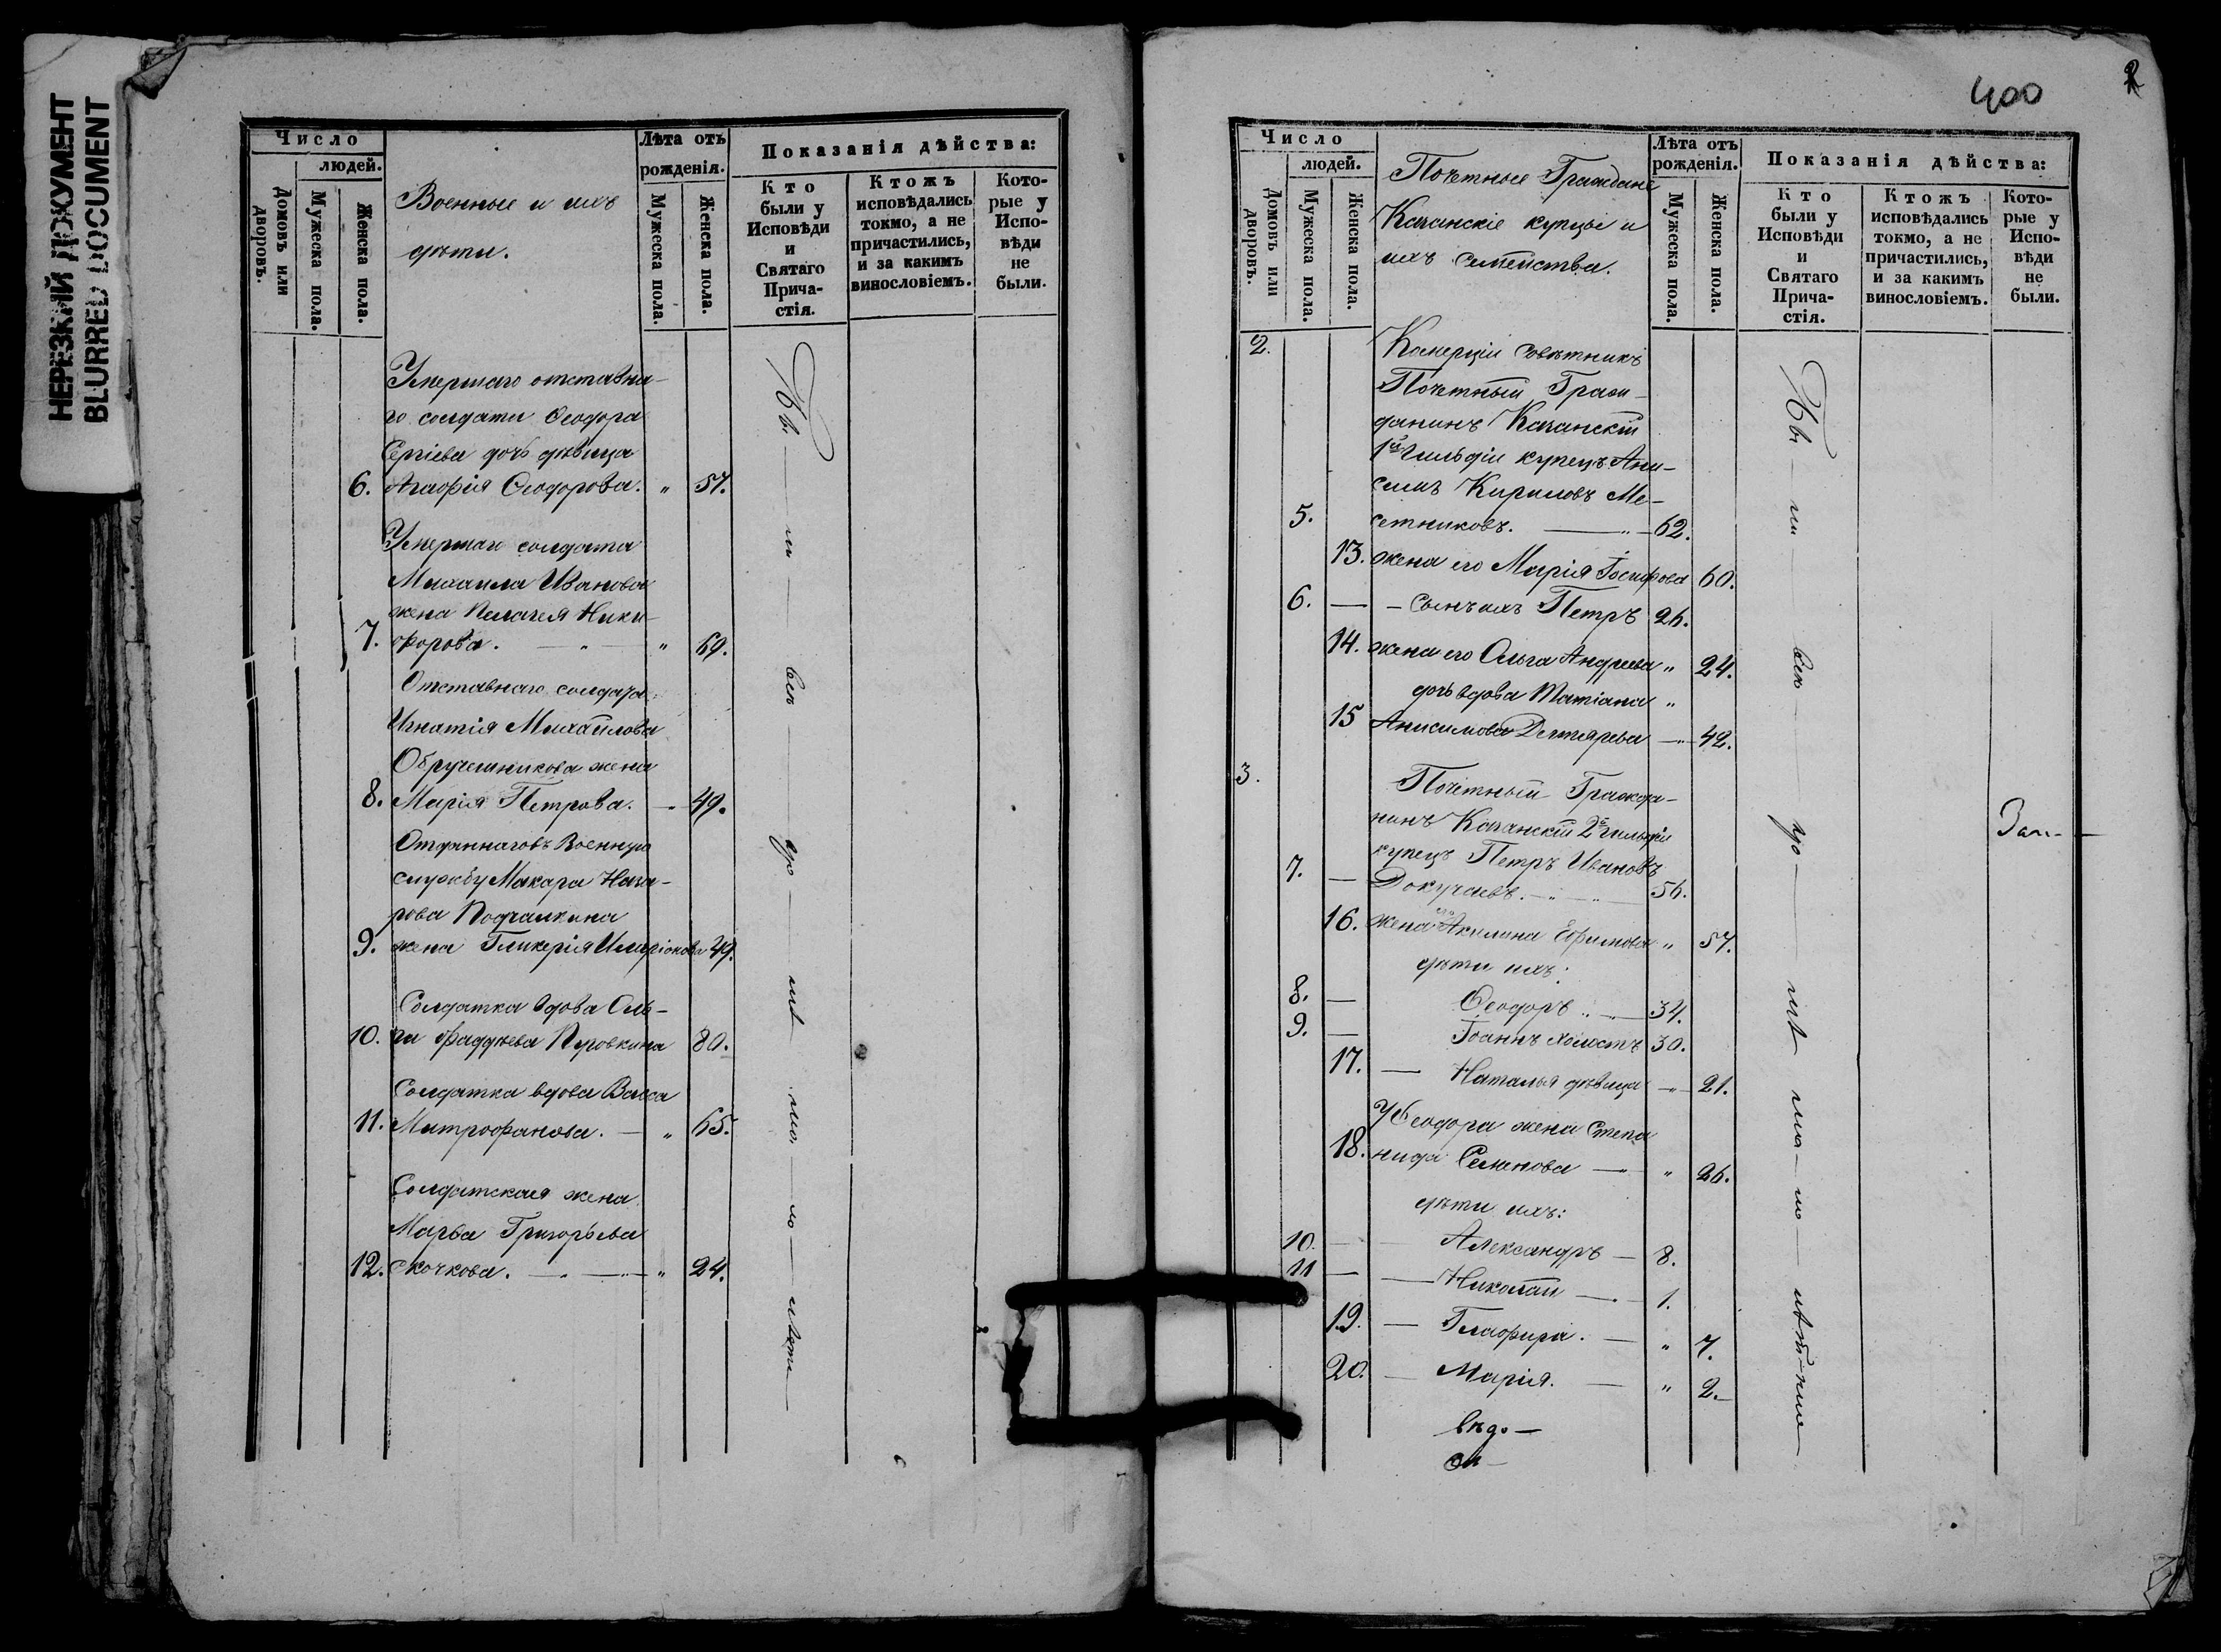 НЕРЕЗКИЙ ДОКУМЕНТ
BLURRED DOCUMENT
Число
людей.
Домовъ или дворовъ.
Мужеска пола.
Женска пола.
Военные и ихъ
дѣти.
Лѣта отъ
рожденія.
Мужеска пола.
Женска пола.
Показанія дѣйства:
Кто
были у
Исповѣди
и
Святаго
Прича-
стія.
Ктожъ
исповѣдались
токмо, а не
причастились,
и за какимъ
винословіемъ.
Кото-
рые у
Испо-
вѣди
не
были.
Умершаго отставна-
го солдата Ѳеодора
Сергіева дочь дѣвица
6. Агаѳія Ѳеодорова. " 57.
Умершаго солдата
Михаила Иванова
жена Пелагея Ники-
7. форова. " " 69.
Отставнаго солдата
Игнатія Михайлова
Обручешникова жена
8. Марія Петрова. 49.
Отданнаго въ военную
службу Макара Наза-
рова Подчалкина
9. жена Гликерія Иларіонова 49.
Солдатка вдова Оль-
10. га Фаддѣева Пуповкина 80.
Солдатка вдова Васса
11. Митрофанова. " 65.
Солдатская жена
Марья Григорьева
12. Скочкова. " 24.
400
2
Число
людей.
Домовъ или дворовъ.
Мужеска пола.
Женска пола.
Почетные Граждане
Казанскіе купцы и
ихъ семейства.
Лѣта отъ
рожденія.
Мужеска пола.
Женска пола.
Показанія дѣйства:
Кто
были у
Исповѣди
и
Святаго
Прича-
стія.
Ктожъ
исповѣдались
токмо, а не
причастились,
и за какимъ
винословіемъ.
Кото-
рые у
Испо-
вѣди
не
были.
2. Комерціи совѣтникъ
Почетный Граж-
данинъ Казанскій
1й гильдіи купецъ Ани-
симъ Кириловъ Ме-
5. сетниковъ. 62.
13. жена его Марія Іосифова 60.
6. сынъ ихъ Петръ 26.
14. жена его Ольга Андреева " 24.
дочь вдова Татіана "
15 Анисимова Дегтярева 42.
3. Почетный Гражда-
нинъ Казанскій 2й гильдіи
купецъ Петръ Ивановъ
7. Докучаевъ. 56.
16. жена его Акилина Ефимова " 57.
дѣти ихъ:
8. Ѳеодоръ 34.
9. Іоаннъ холостъ 30.
17. Наталья дѣвица 21.
У Ѳеодора жена Степа
18. нида Семенова " 26.
дѣти ихъ:
10. Александръ 8.
11 Николай 1.
19. Глафира. " 7.
20. Марія. " 2.